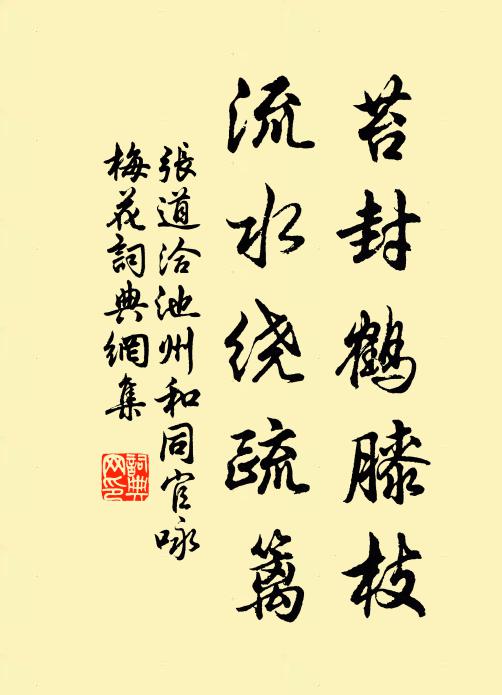 苔封鹤膝枝
流水绕疏篱
張道洽池州和同官咏
梅花詞典網集
詞典網印